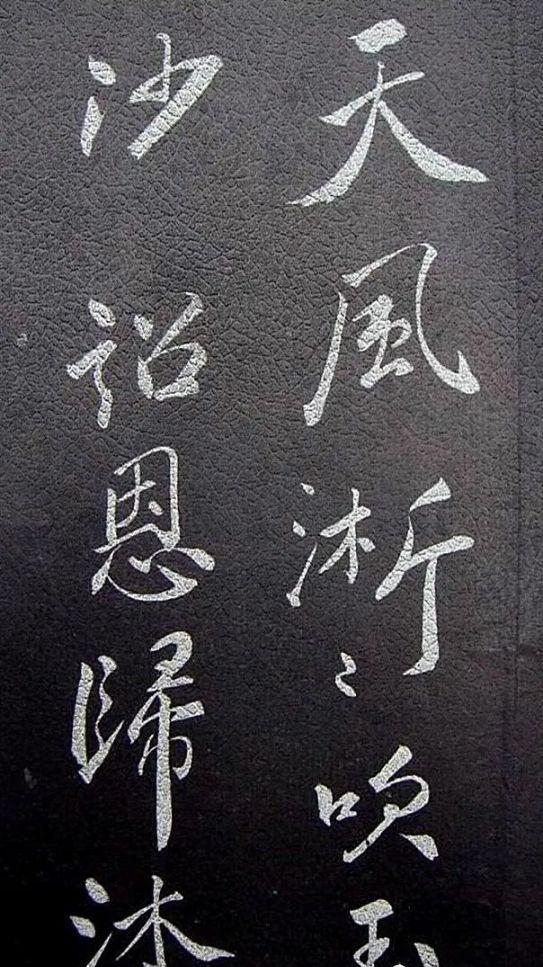 天風淅々吹玉
沙詔恩歸沐